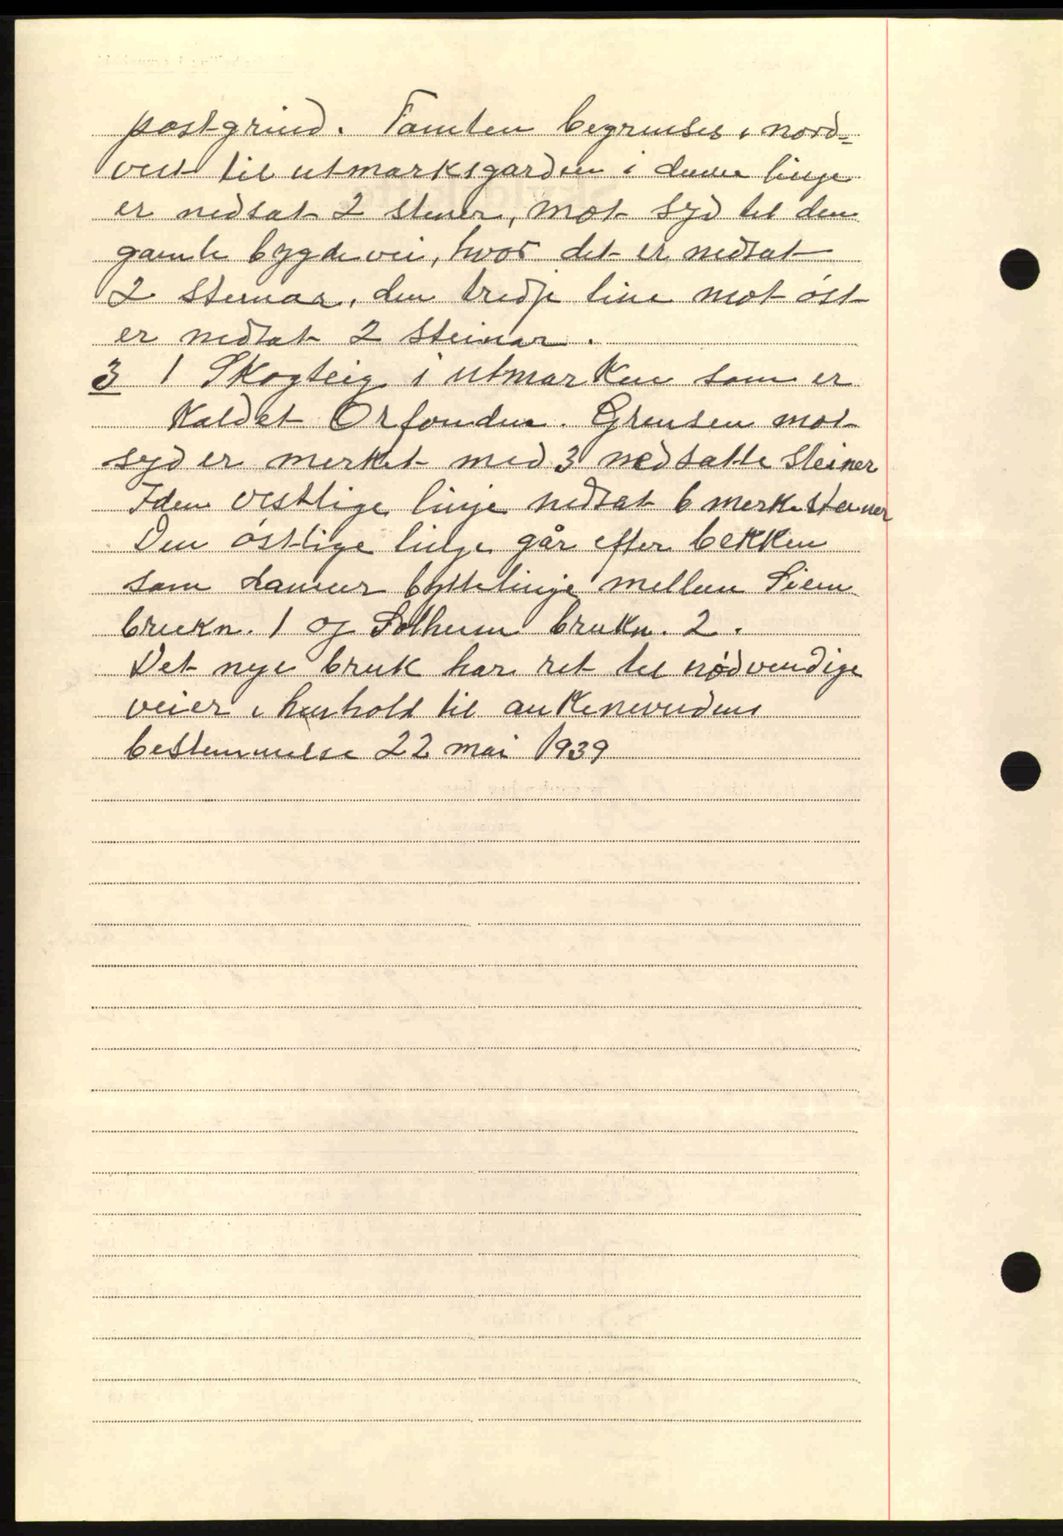 postgrind. Tomten begrenses i nord-
vest til utmarksgarden i denne linje
er nedsat 2 stener, mot syd til den
gamle bygdevei, hvor det er nedsat
2 steinar, den tredje linie mot öst
er nedsat 2 steinar.
3 1 Skogteig i utmarken som er
Kaldet Orfonden. Grensen mot
syd er merket med 3 nedsatte Steiner
I den vestlige linje nedsat 6 merkesteiner
Den östlige linje går efter bekken
som danner byttelinje mellem Siem
bruckn. 1 og Solheim brukn. 2.
Det nye bruk har ret til nødvendige
veier i henhold til ankenevndens
bestemmelse 22 mai 1939